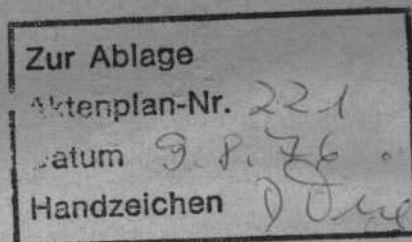 Zur Ablage
Aktenplan-Nr. 221
Datum 9.8.76.
Handzeichen